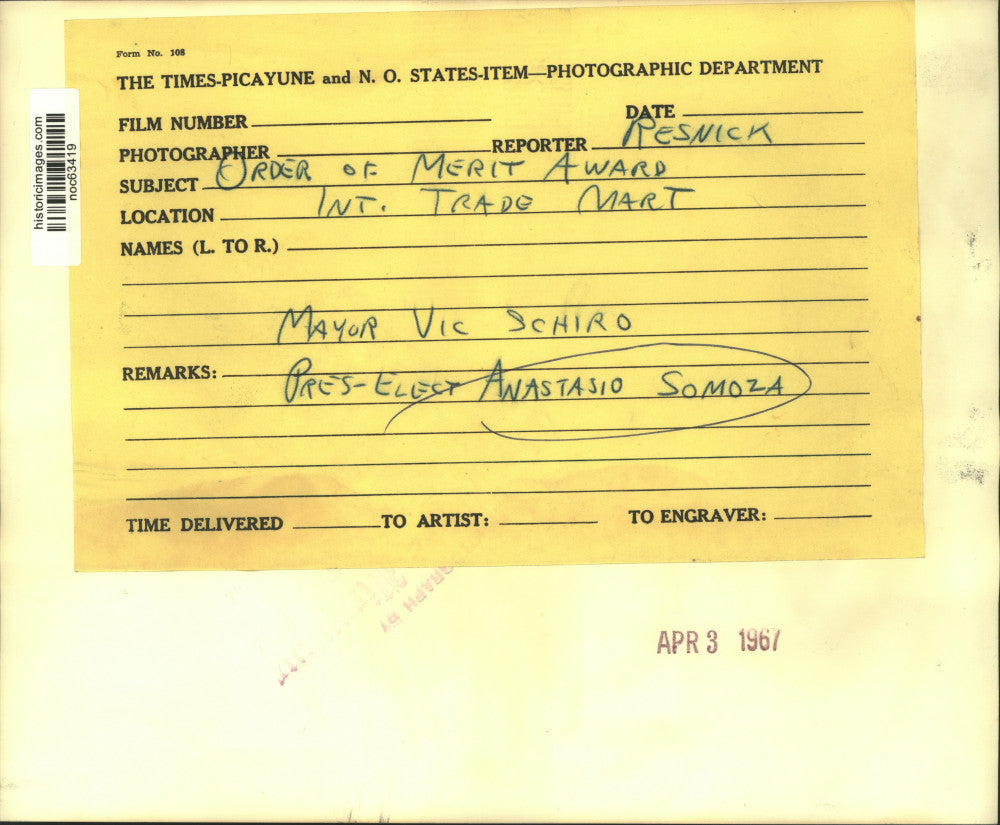 Form No. 108
THE TIMES-PICAYUNE and N. O. STATES-ITEM—PHOTOGRAPHIC DEPARTMENT
FILM NUMBER DATE
PHOTOGRAPHER REPORTER RESNICK
SUBJECT ORDER OF MERIT AWARD
LOCATION INT. TRADE MART
NAMES (L. TO R.)
MAYOR VIC SCHIRO
REMARKS: PRES-ELECT ANASTASIO SOMOZA
TIME DELIVERED TO ARTIST: TO ENGRAVER:
historicimages.com
noc63419
GRAPH BY
APR 3 1967